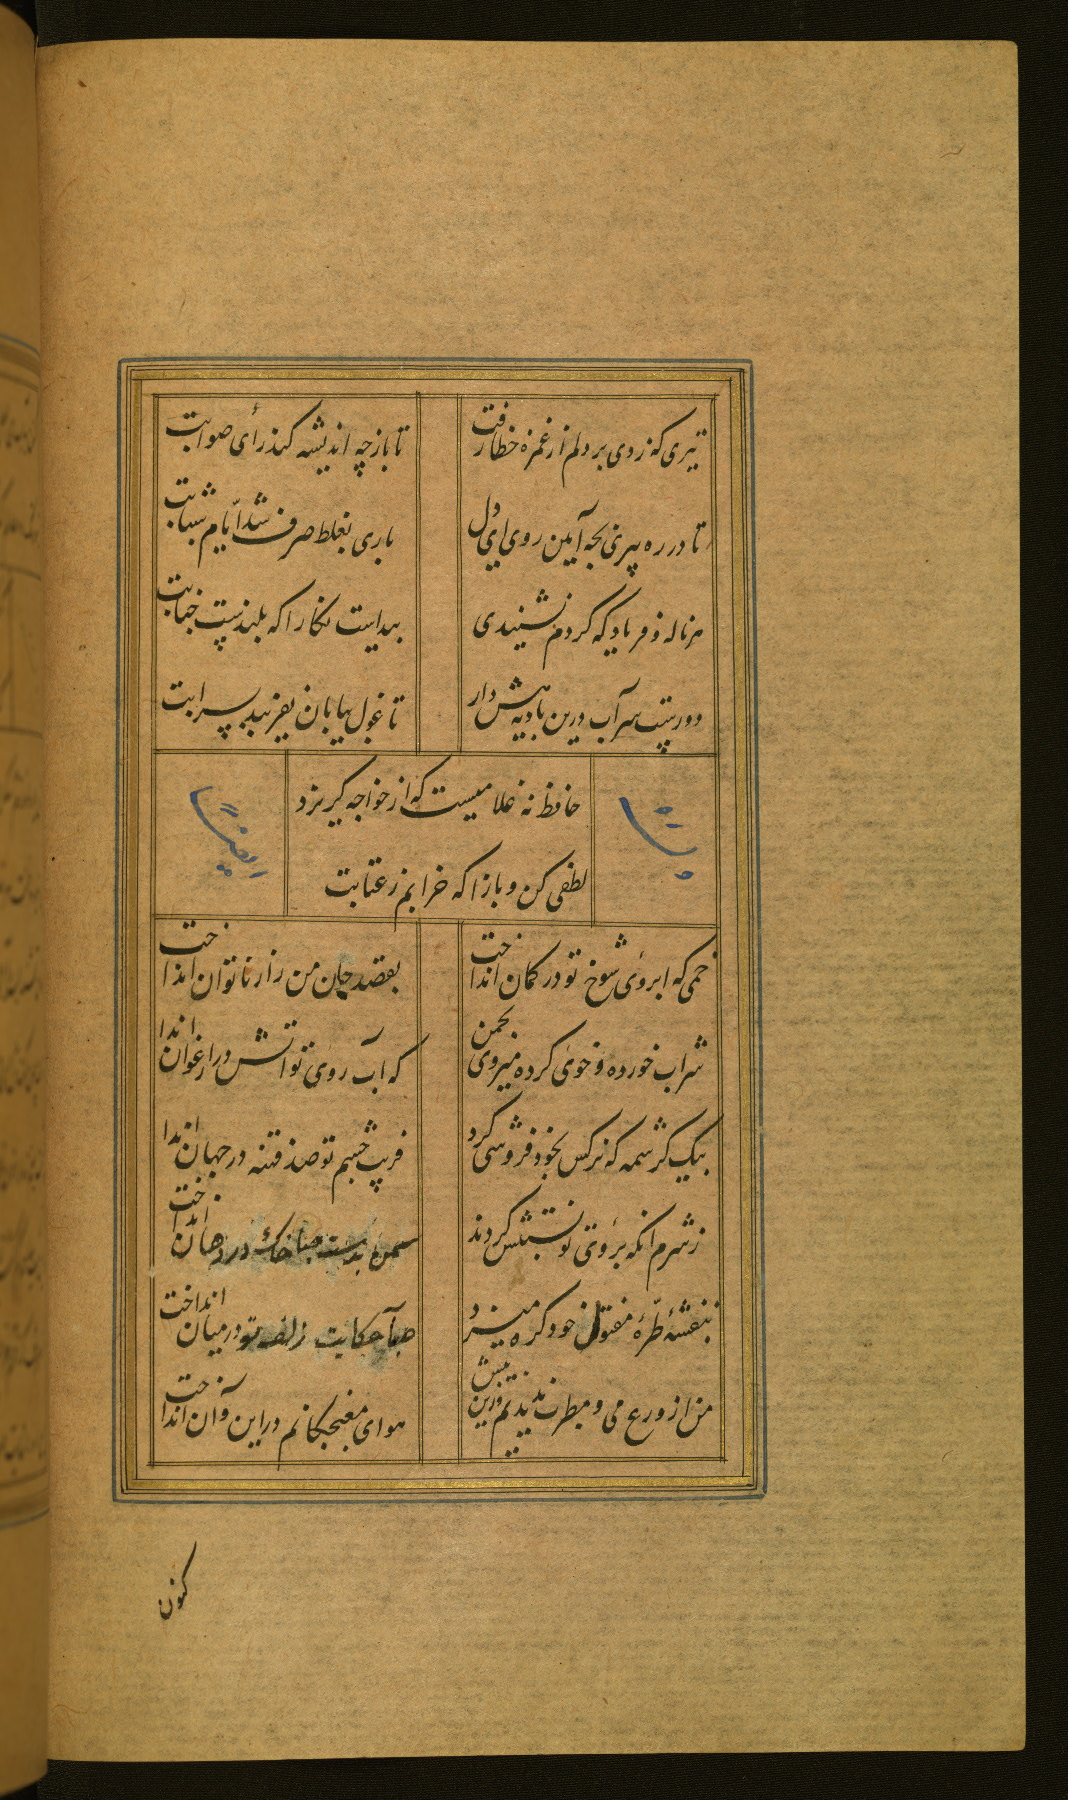 تیری که زدی بر دلم از غمزه خطا رفت
تا باز چه اندیشه کند رأی صوابت
تا در ره پیری بچه آیین روی ای دل
باری بغلط صرف شد ایّام شبابت
هر ناله و فریاد که کردم نشنیدی
پیداست نگارا که بلندست جنابت
دورست سر آب درین بادیه هش دار
تا غول بیابان نفریبد بسرابت
حافظ نه غلامیست که از خواجه گریزد
لطفی کن و بازا که خرابم ز عتابت
وله
ایضا
خمی که ابروی شوخ تو در کمان انداخت
بقصد جان من زار ناتوان انداخت
شراب خورده و خوی کرده میروی بچمن
که آب روی تو آتش در ارغوان اندا
بیک کرشمه که نرکس بخود فروشی کرد
فریب چشم تو صد فتنه در جهان اندا
ز شرم انکه بروی تو نسبتش کردند
سمن بدست صبا خاک در دهان انداخت
بنفشه طرّهٔ مفتول خود کره میزد
صبا حکایت زلف تو در میان انداخت
من از ورع می و مطرب ندیدیم زین پیش
هوای مغبچکانم در این و آن انداخت
کنون